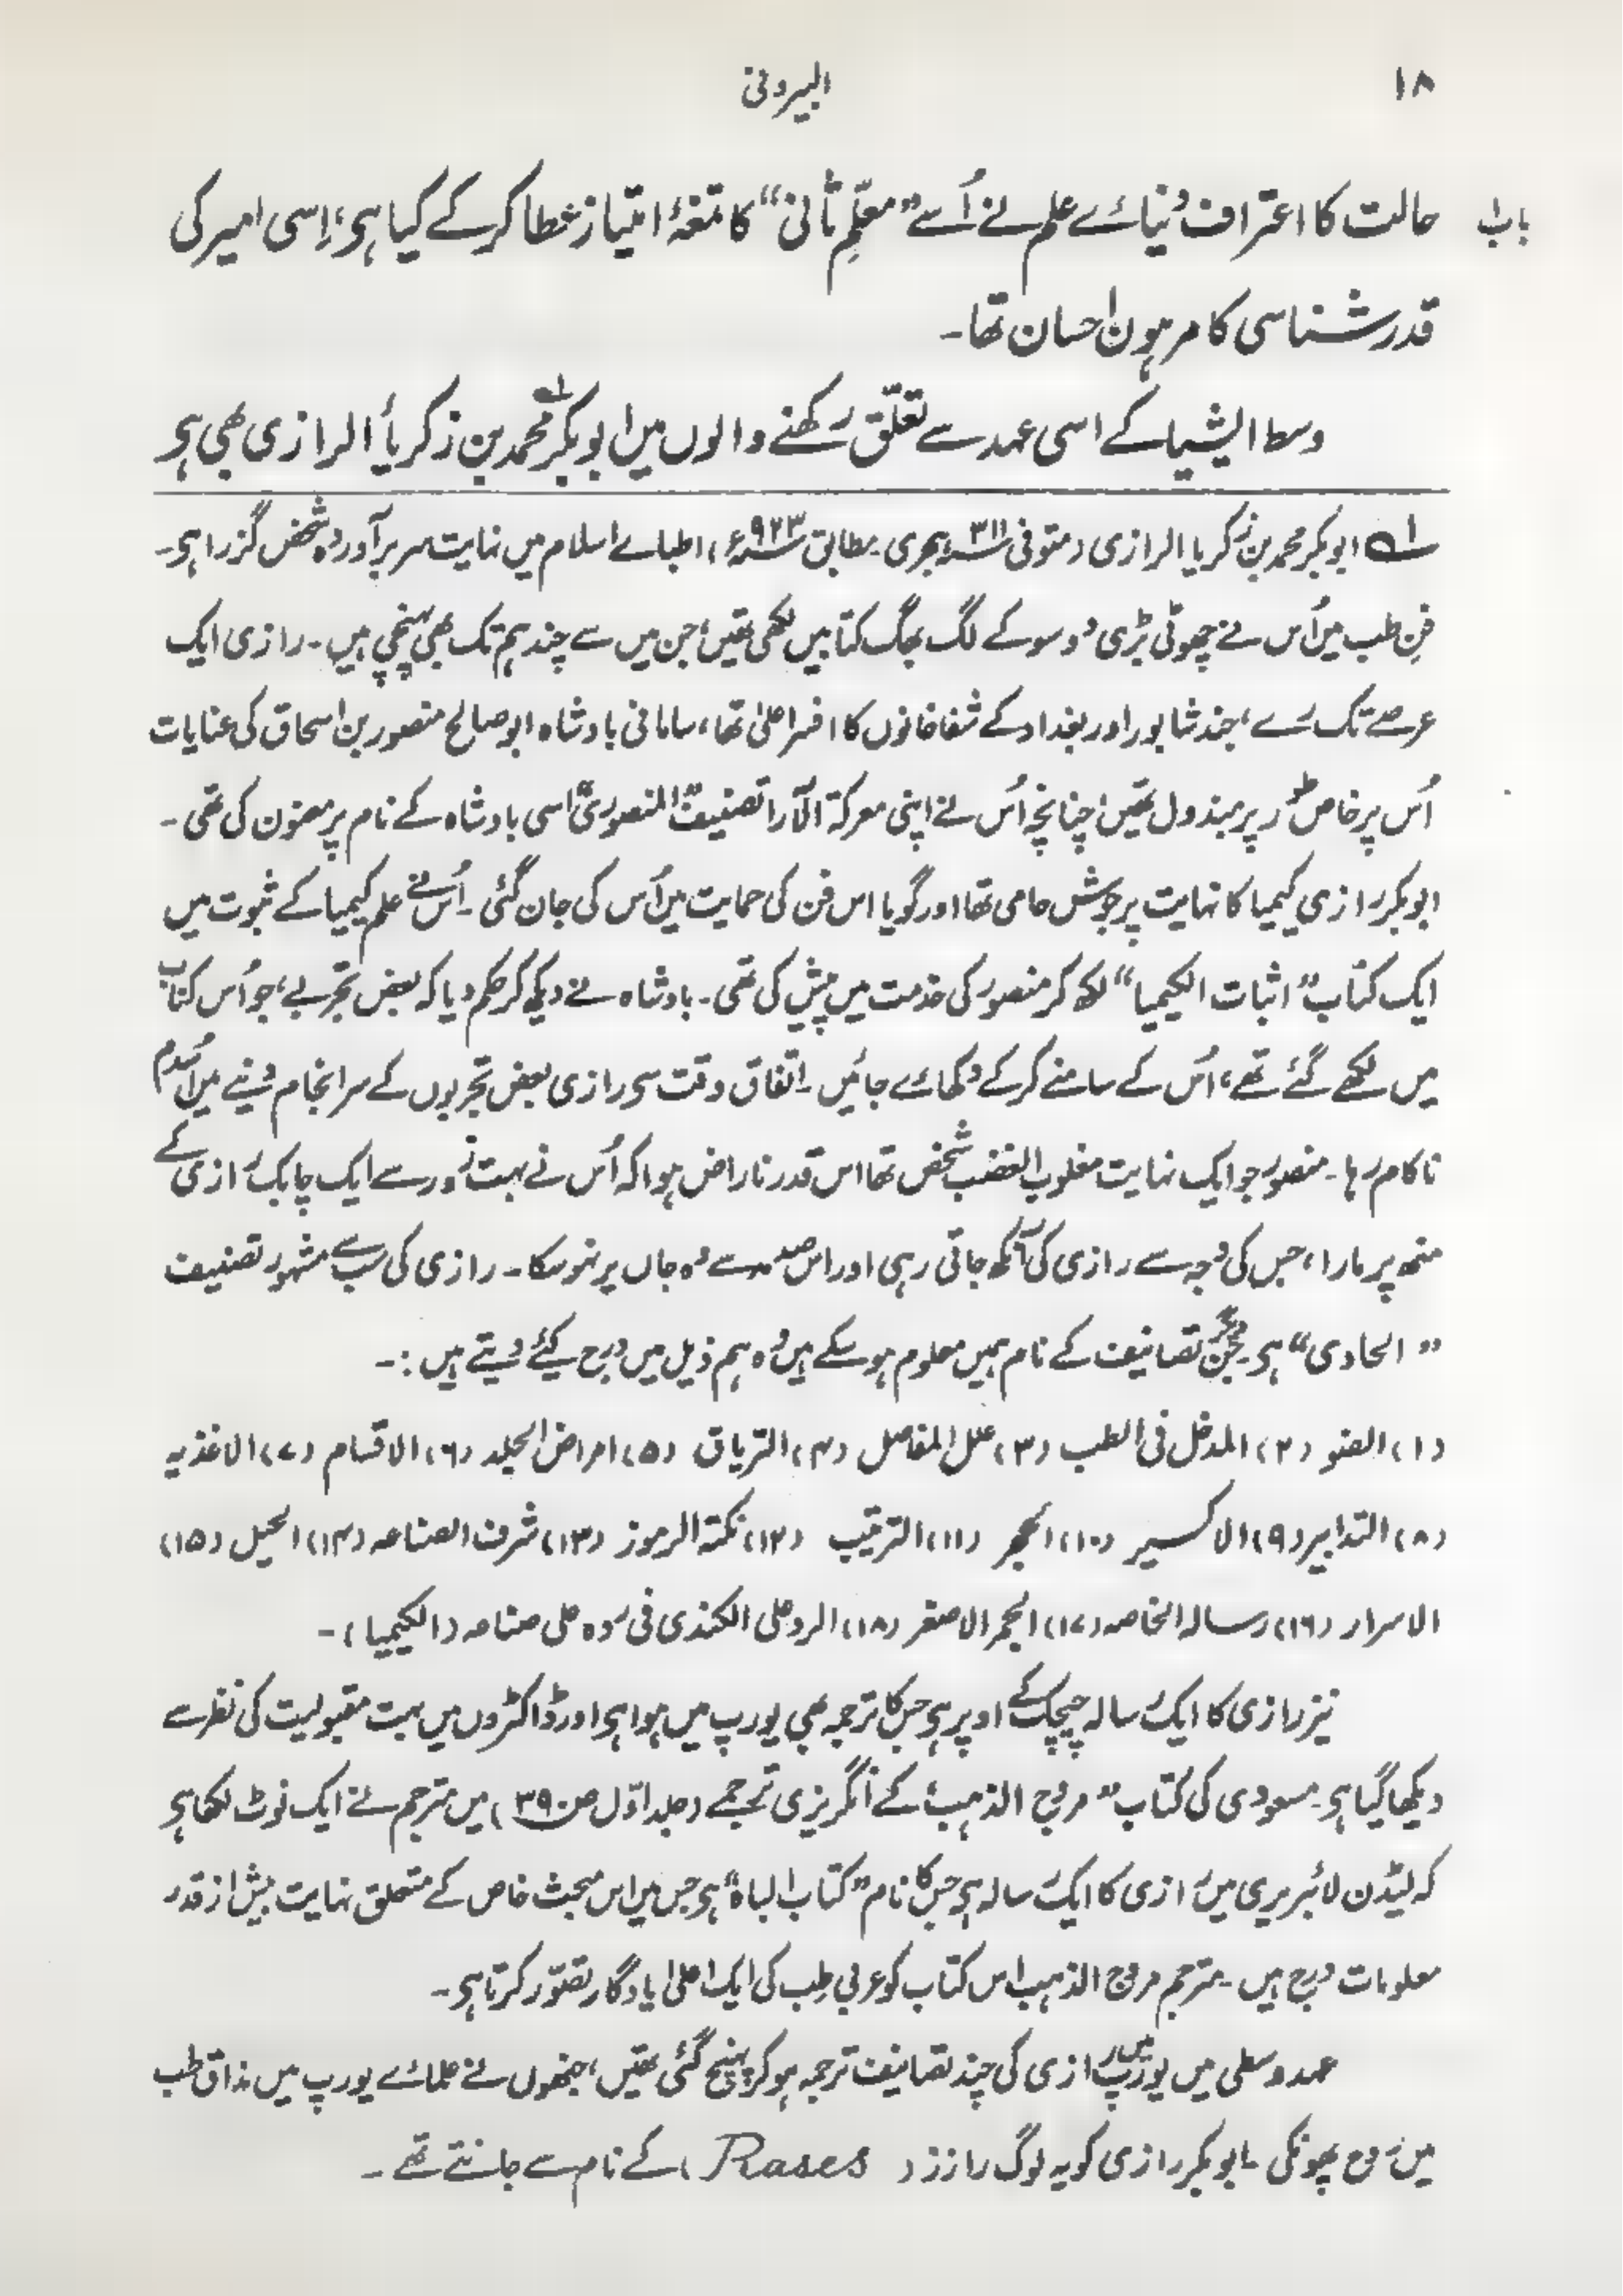 ۱۸
البیرونی
باب ۱
حالت کا اعتراف دُنیائے علم نے اُسے ”معلّمِ ثانی“ کا تمغۂ امتیاز عطا کرکے کیا ہی، اِسی امیر کی
قدر شناسی کا مرہونِ احسان تھا۔
وسط ایشیا کے اسی عہد سے تعلّق رکھنے والوں میں ابو بکر محمد بن زکریا الرازی بھی ہی
۱؎ ابو بکر محمد بن زکریا الرازی (متوفی ۳۱۱ سنہ ہجری مطابق ۹۲۳ سنہء) اطبائے اسلام میں نہایت سربرآوردہ شخص گزرا ہی۔
فنِ طب میں اُس نے چھوٹی بڑی دو سو کے لگ بھگ کتابیں لکھی تھیں، جن میں سے چند ہم تک بھی پہنچی ہیں۔ رازی ایک
عرصے تک رے، جند شاپور اور بغداد کے شفاخانوں کا افسرِ اعلیٰ تھا، سامانی بادشاہ ابو صالح منصور بن اسحاق کی عنایات
اُس پر خاص طور پر مبذول تھیں، چنانچہ اُس نے اپنی معرکۃ الآرا تصنیف ”المنصوری“ اسی بادشاہ کے نام پر معنون کی تھی۔
ابو بکر رازی کیمیا کا نہایت پرجوش حامی تھا اور گویا اس فن کی حمایت میں اُس کی جان گئی۔ اُس نے علم کیمیا کے ثبوت میں
ایک کتاب ”اثبات الکیمیا“ لکھ کر منصور کی خدمت میں پیش کی تھی۔ بادشاہ نے دیکھ کر حکم دیا کہ بعض تجربے، جو اُس کتاب
میں لکھے گئے تھے، اُس کے سامنے کرکے دکھائے جائیں۔ اتفاق وقت سی رازی بعض تجربوں کے سر انجام دینے میں اُسدم
ناکام رہا۔ منصور جو ایک نہایت مغلوب الغضب شخص تھا اس قدر ناراض ہوا کہ اُس نے بہت زور سے ایک چابک رازی کے
منھ پر مارا، جس کی وجہ سے رازی کی آنکھ جاتی رہی اور اس صدمہ سے وہ جاں بر نہو سکا۔ رازی کی سب سے مشہور تصنیف
”الحاوی“ ہی جن دیگر تصانیف کے نام ہمیں معلوم ہو سکے ہیں وہ ہم ذیل میں درج کیئے دیتے ہیں:۔
(۱) العفو (۲) المدخل فی الطب (۳) علل المفاصل (۴) التریاق (۵) امراض الجلد (۶) الاقسام (۷) الاغذیہ
(۸) التدابیر (۹) الاکسیر (۱۰) الحجر (۱۱) الترتیب (۱۲) نکتۃ الرموز (۱۳) شرف الصناعہ (۱۴) الحیل (۱۵)
الاسرار (۱۶) رسالہ الخاصہ (۱۷) الحجر الاصفر (۱۸) الرد علی الکندی فی ردہ علی صناعہ (الکیمیا)۔
نیز رازی کا ایک رسالہ چیچک کے اوپر ہی جس کا ترجمہ بھی یورپ میں ہوا ہی اور ڈاکٹروں میں بہت مقبولیت کی نظر سے
دیکھا گیا ہی۔ مسعودی کی کتاب ”مروج الذہب“ کے انگریزی ترجمے (جلد اوّل ص ۳۹۰) میں مترجم نے ایک نوٹ لکھا ہی
کہ لیڈن لائبریری میں رازی کا ایک رسالہ ہی جس کا نام ”کتاب الباہ“ ہی جس میں اس مبحث خاص کے متعلق نہایت بیش از قدر
معلومات درج ہیں۔ مترجم مروج الذہب اس کتاب کو عربی طب کی ایک اعلیٰ یادگار تصوّر کرتا ہی۔
عہد وسطی میں یورپ میں رازی کی چند تصانیف ترجمہ ہوکر پہنچ گئی تھیں، جنھوں نے علمائے یورپ میں مذاق طب
میں روح پھونکی۔ ابو بکر رازی کو یہ لوگ رازز (Rases) کے نام سے جانتے تھے۔